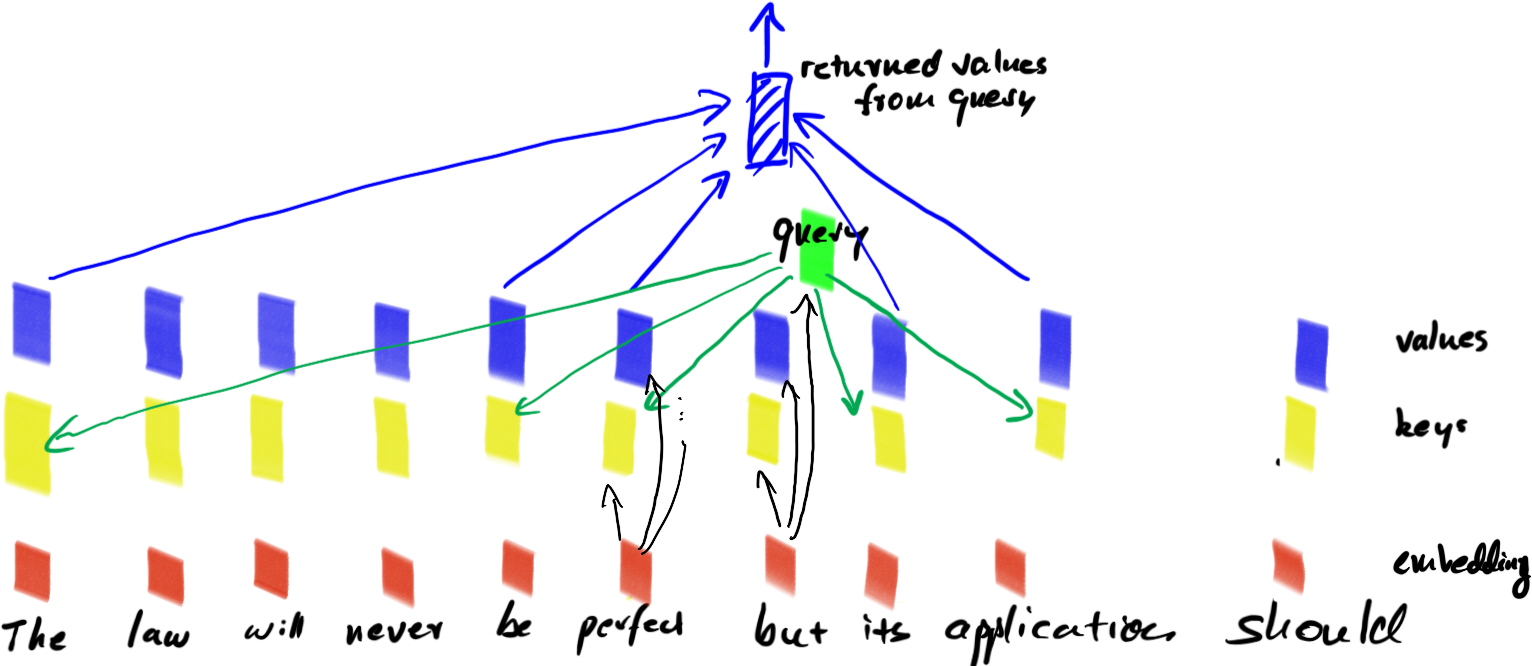 returned values
from query
query
values
keys
embedding
The law will never be perfect but its application should